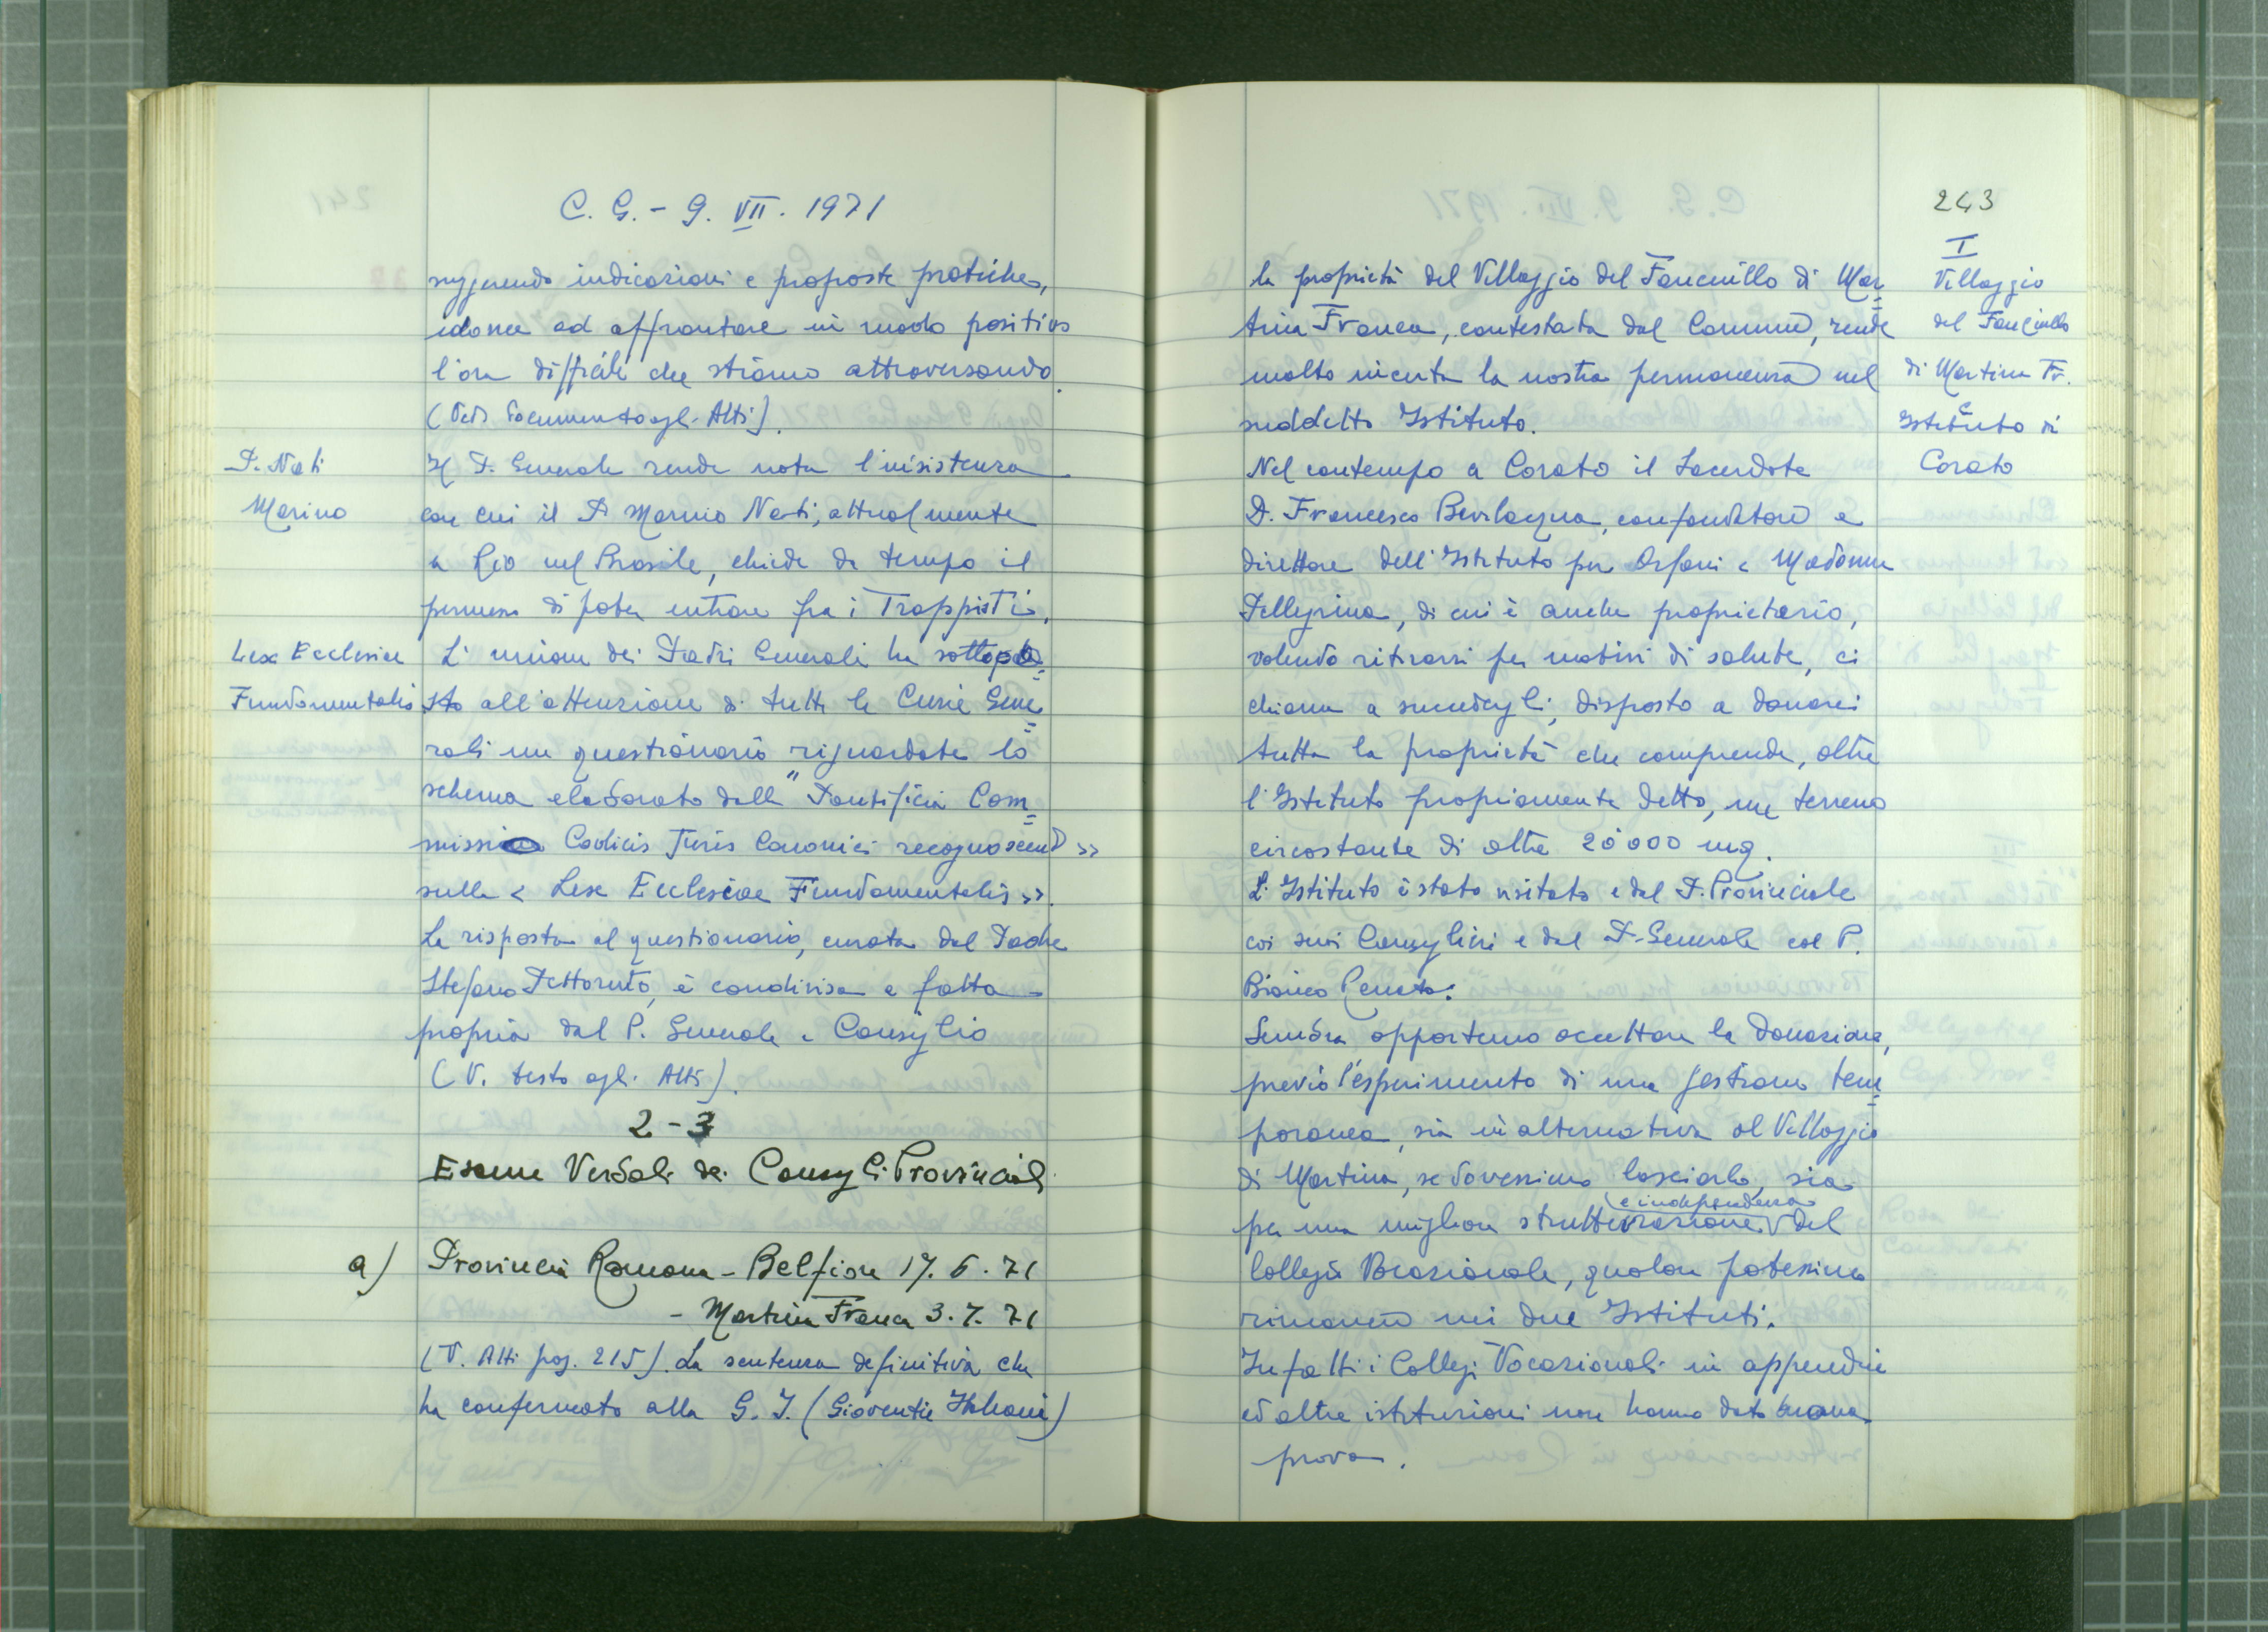 C. G. - 9. VII. 1971
suggerendo indicazioni e proposte pratiche,
idonee ad affrontare in modo positivo
l'ora difficile che stiamo attraversando.
(Vedi documento agli Atti).
P. Nati
Marino
Il P. Generale rende nota l'insistenza
con cui il P. Marino Nati, attualmente
a Rio nel Brasile, chiede da tempo il
permesso di poter entrare fra i Trappisti.
Lex Ecclesiae
Fundamentalis
L'unione dei Padri Generali ha sottopo=
sto all'attenzione di tutte le Curie Gene=
rali un questionario riguardate lo
schema elaborato dalla "Pontificia Com=
missio Codicis Juris Canonici recognoscendo >>
sulla < Lex Ecclesiae Fundamentalis >>.
La risposta al questionario, curata dal Padre
Stefano Pettoruto, è condivisa e fatta
propria dal P. Generale e Consiglio
(V. testo agli Atti).
2 - 3
Esame Verbali dei Consigli Provinciali
a) Provincia Romana - Belfiore 17. 6. 71
- Martina Franca 3. 7. 71
(V. Atti pag. 215). La sentenza definitiva che
ha confermato alla G. I. (Gioventù Italiana)
243
I
Villaggio
del Fanciullo
di Martina Fr.
e
Istituto di
Corato
la proprietà del Villaggio del Fanciullo di Mar=
tina Franca, contestata dal Comune, rende
molto incerta la nostra permanenza nel
suddetto Istituto.
Nel contempo a Corato il Sacerdote
D. Francesco Bevilacqua, confondatore e
direttore dell'Istituto per Orfani < Madonna
Pellegrina, di cui è anche proprietario,
volendo ritirarsi per motivi di salute, ci
chiama a succedergli, disposto a donarci
tutta la proprietà che comprende, oltre
l'Istituto propriamente detto, un terreno
circostante di oltre 20000 mq.
L'Istituto è stato visitato e dal P. Provinciale
coi suoi Consiglieri e dal P. Generale col P.
Bianco Renato.
Sembra opportuno accettare la donazione,
previo l'esperimento di una gestione tem=
poranea, sia in alternativa al Villaggio
di Martina, se dovessimo lasciarlo, sia
per una migliore strutturazione e indipendenza del
Collegio Vocazionale, qualora potessimo
rimanere nei due Istituti.
Infatti i Collegi Vocazionali in appendice
ed altre istituzioni non hanno dato buona
prova.